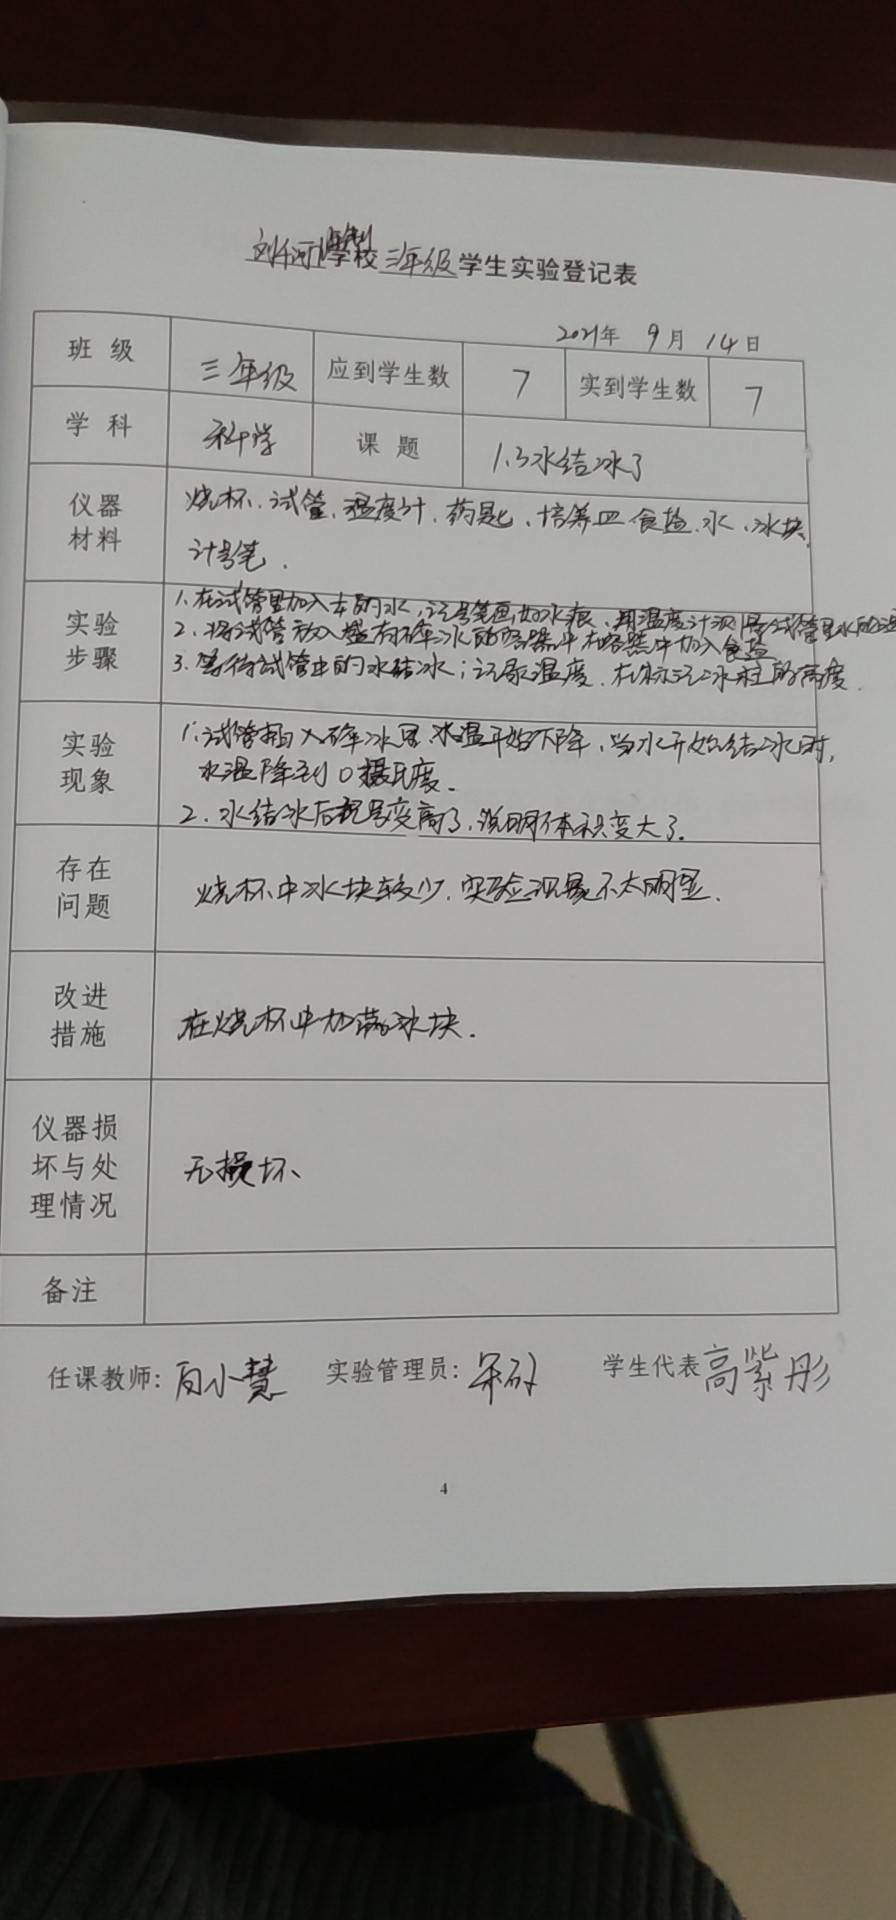 学校三年级学生实验登记表
2021年 9月 14日
班级 三年级 应到学生数 7 实到学生数 7
学科 科学 课题 1.3水结冰了
仪器材料 烧杯、试管、温度计、药匙、培养皿 食盐、水、冰块
计号笔.
实验步骤 1.在试管里加入 的水,记号笔画 水痕、用温度计测 试管里水的温
2.将试管放入盛有碎冰的容器中 在容器中加入食盐
3.等待试管中的水结冰;记录温度.在标记冰柱的高度.
实验现象 1.试管插入碎冰里.水温开始下降、当水开始结冰时,
水温降到0摄氏度.
2.水结冰后 变高了.说明体积变大了.
存在问题 烧杯中冰块较少.实验现象不太明显.
改进措施 在烧杯中加满冰块.
仪器损坏与处理情况 无损坏、
备注
任课教师: 小慧 实验管理员: 学生代表 高紫彤
4